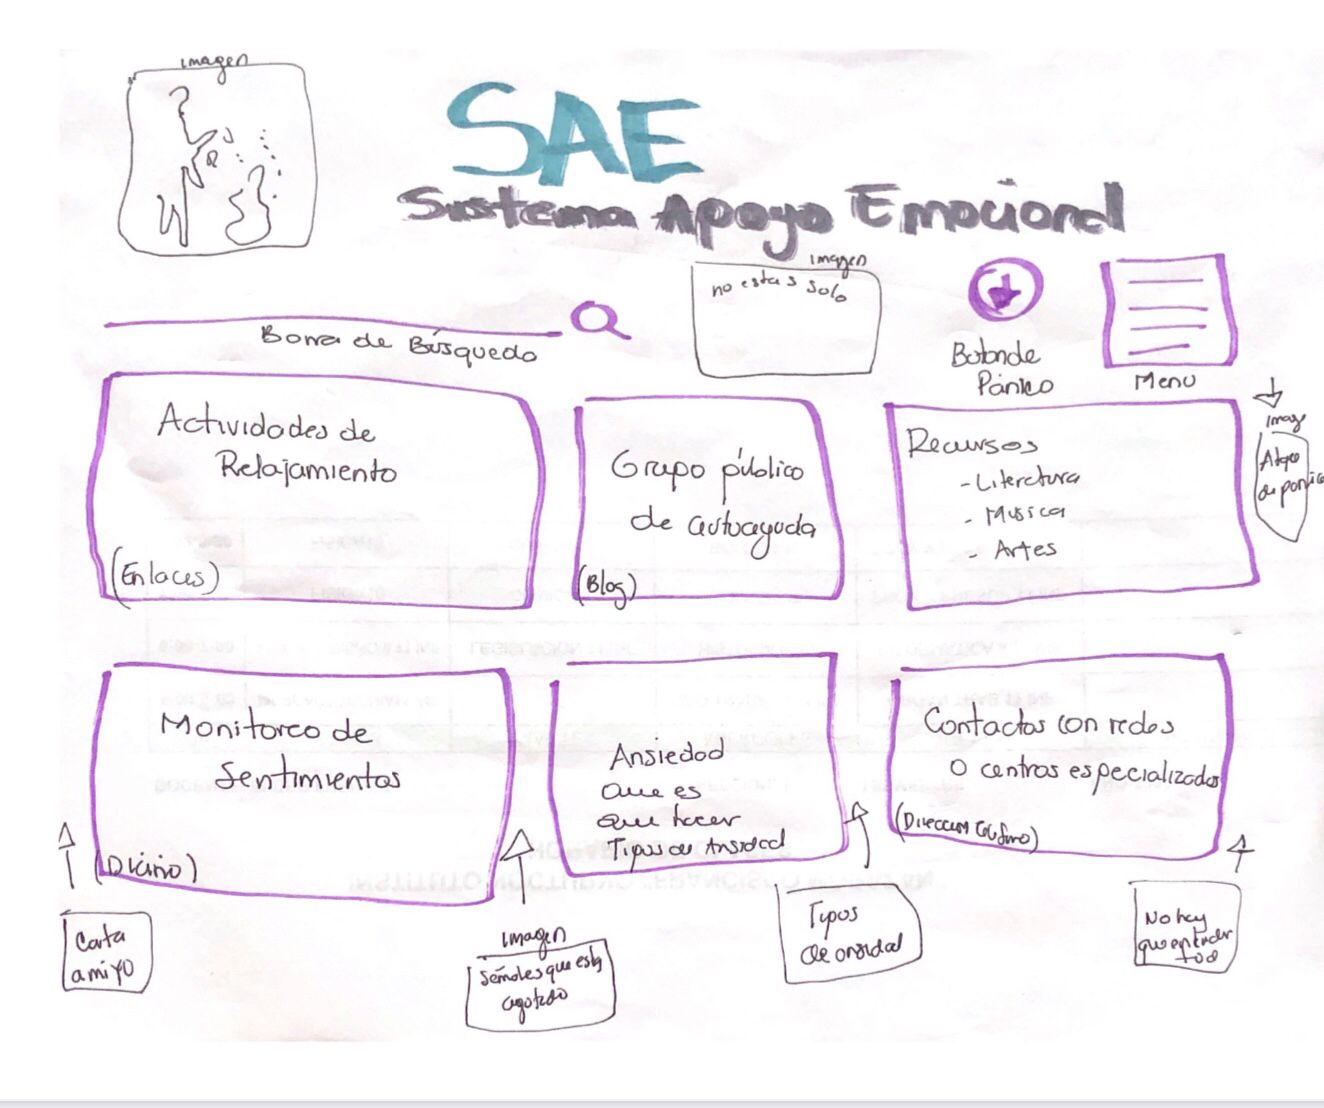 imagen
SAE
Sistema Apoyo Emocional
imagen
no estas solo
Barra de Búsqueda
Boton de
Pánico
Menu
Actividades de
Relajamiento
(Enlaces)
Grupo público
de autoayuda
(Blog)
Recursos
- Literatura
- Musica
- Artes
imag
Ataque
de panico
Monitoreo de
Sentimientos
(Diario)
Ansiedad
que es
que hacer
Tipos de Ansiedad
Contactos con redes
o centros especializados
(Direccion
Carta
a mi yo
imagen
Señales que esta
agotado
Tipos
de ansiedad
No hay
que